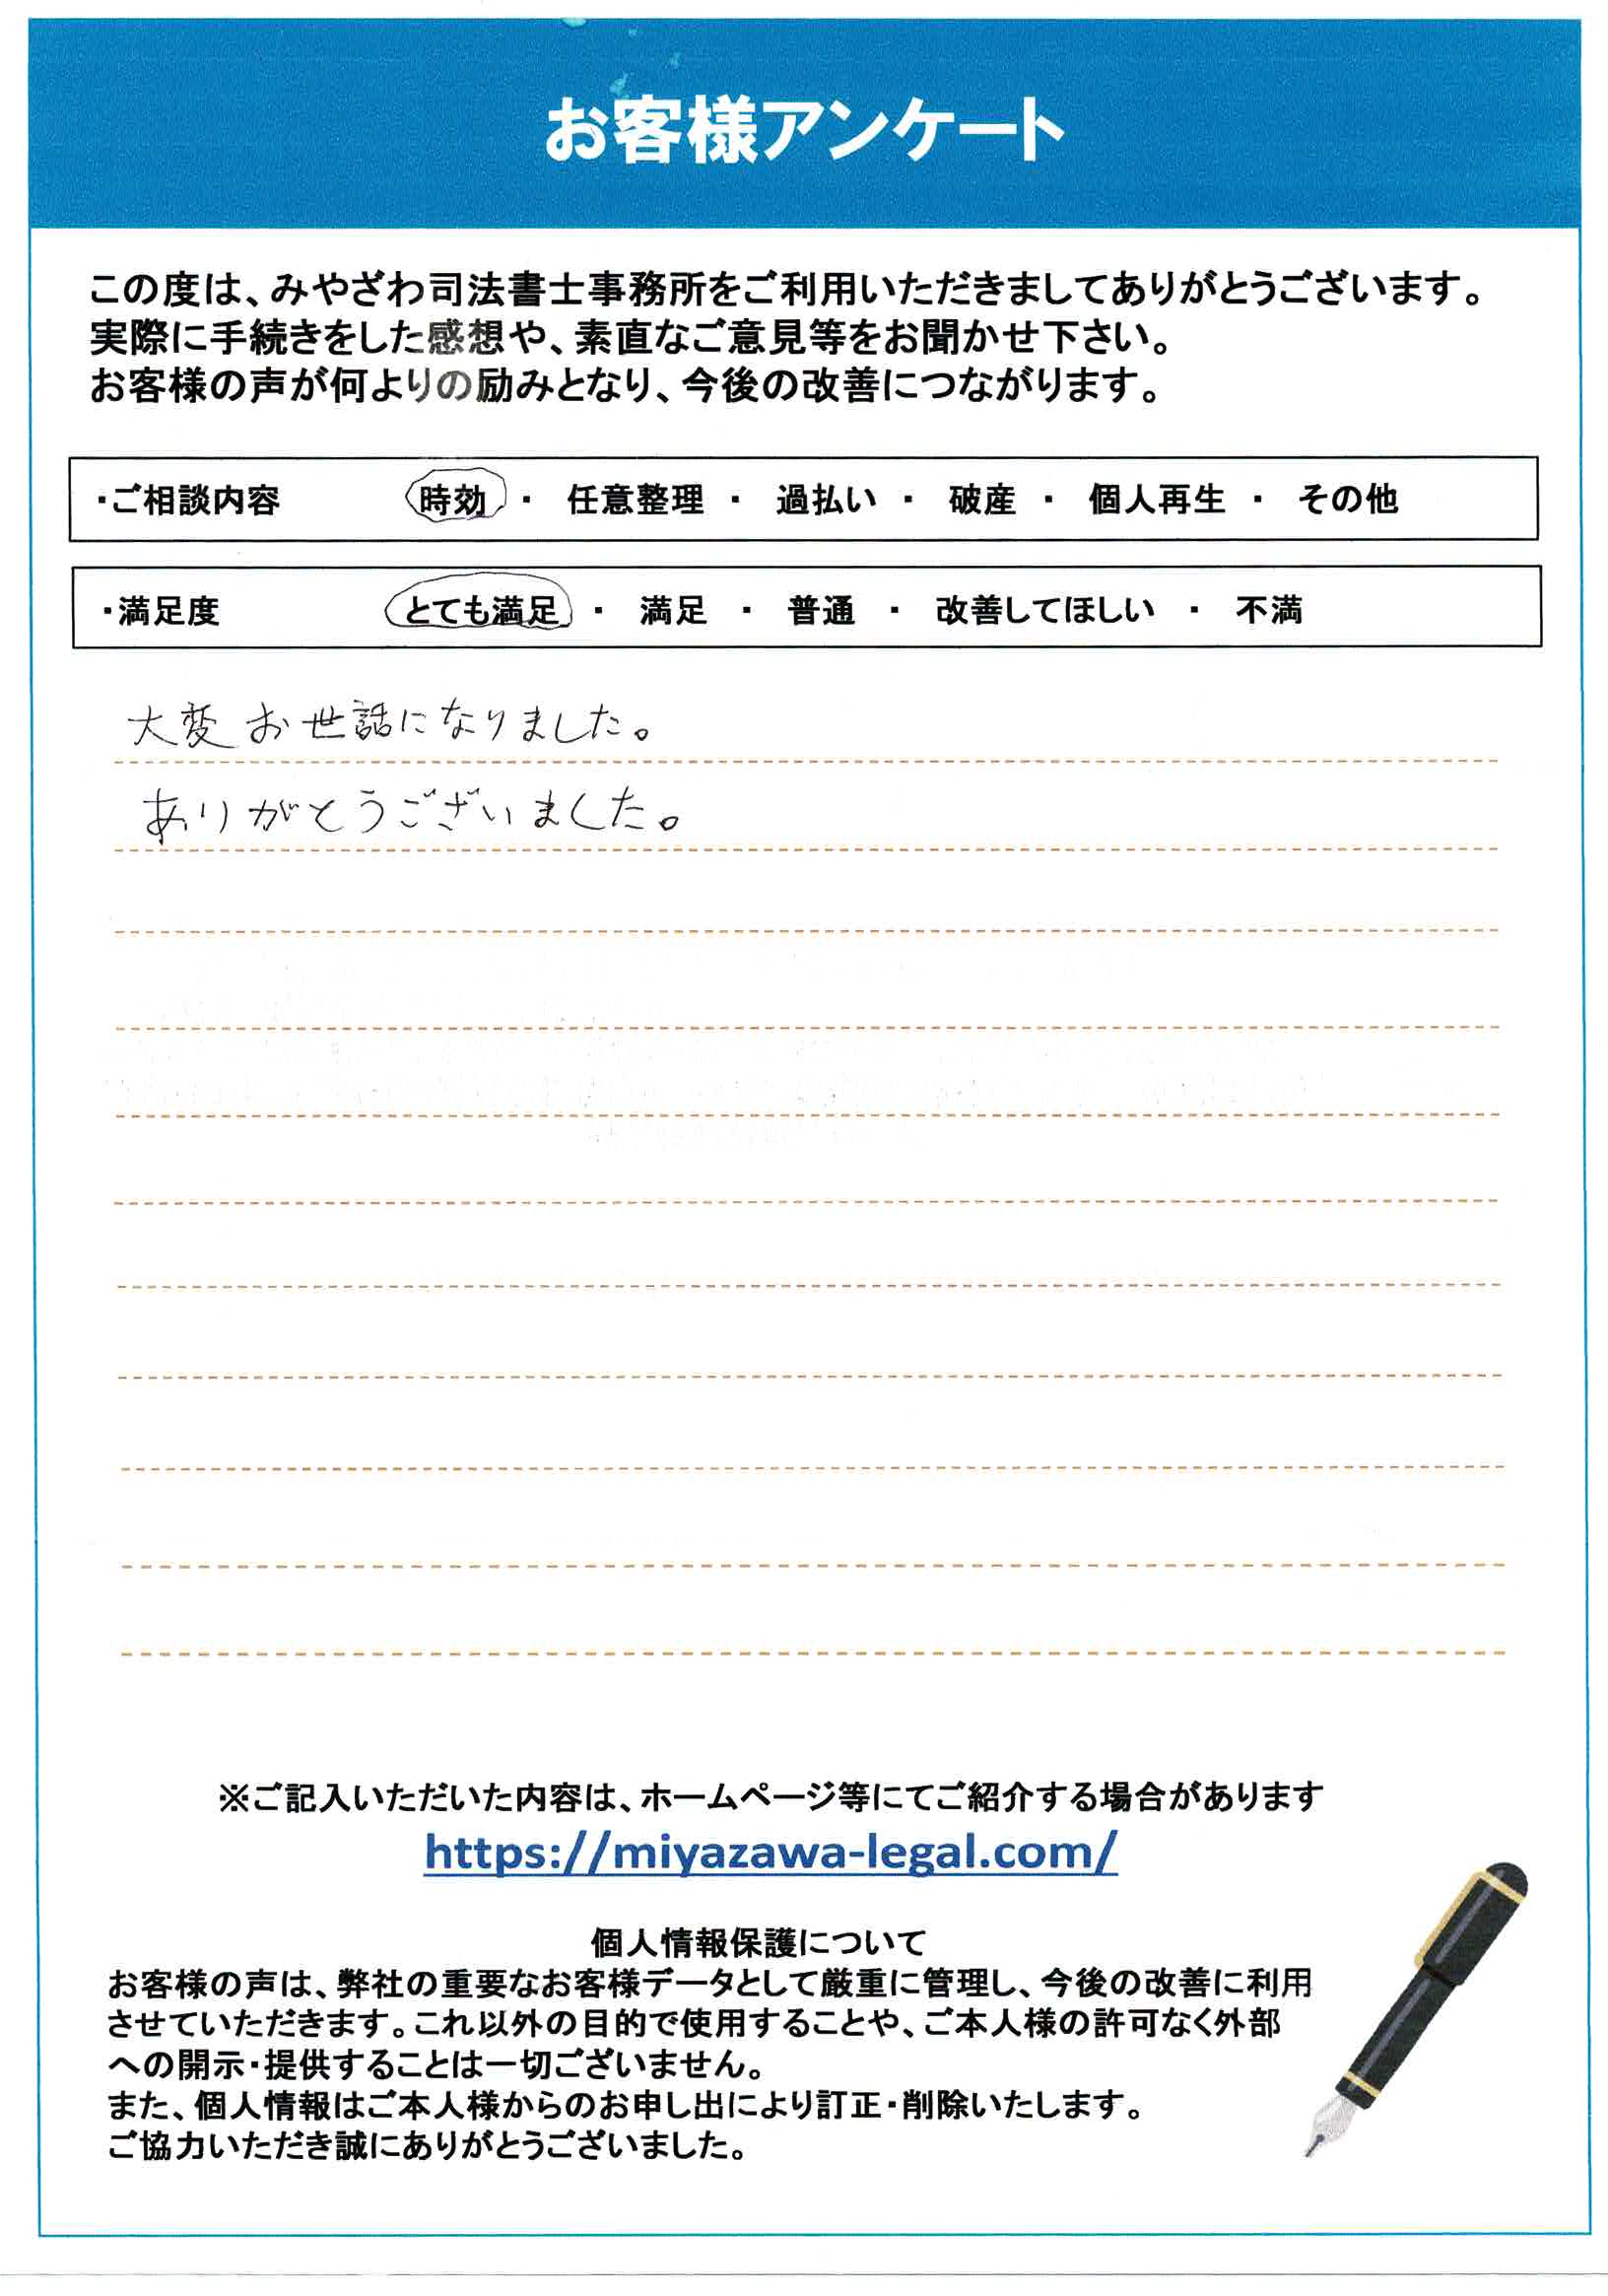 お客様アンケート
この度は、みやざわ司法書士事務所をご利用いただきましてありがとうございます。
実際に手続きをした感想や、素直なご意見等をお聞かせ下さい。
お客様の声が何よりの励みとなり、今後の改善につながります。
・ご相談内容 時効 ・ 任意整理 ・ 過払い ・ 破産 ・ 個人再生 ・ その他
・満足度 とても満足 ・ 満足 ・ 普通 ・ 改善してほしい ・ 不満
大変お世話になりました。
ありがとうございました。
※ご記入いただいた内容は、ホームページ等にてご紹介する場合があります
https://miyazawa-legal.com/
個人情報保護について
お客様の声は、弊社の重要なお客様データとして厳重に管理し、今後の改善に利用
させていただきます。これ以外の目的で使用することや、ご本人様の許可なく外部
への開示・提供することは一切ございません。
また、個人情報はご本人様からのお申し出により訂正・削除いたします。
ご協力いただき誠にありがとうございました。